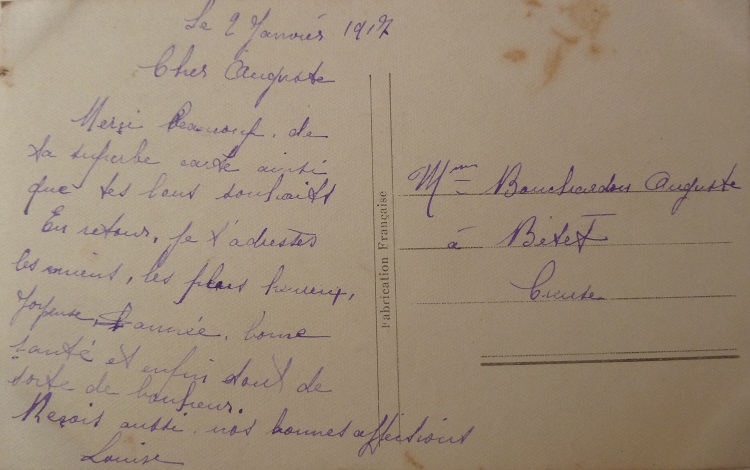 Le 2 Janviés 1917
Cher Auguste
Merçi beaucoup. de
ta superbe carte ainsi
que tes bons souhaits
En retour, je t'adresses
les miens, les plus heureux,
Joyeuse, année, bonne
santé et enfin tout de
sorte de bonheur.
Reçois aussi nos bonnes affections
Louise
Fabrication Française
Mme Bouchardon Auguste
à Bétêt
Creuse